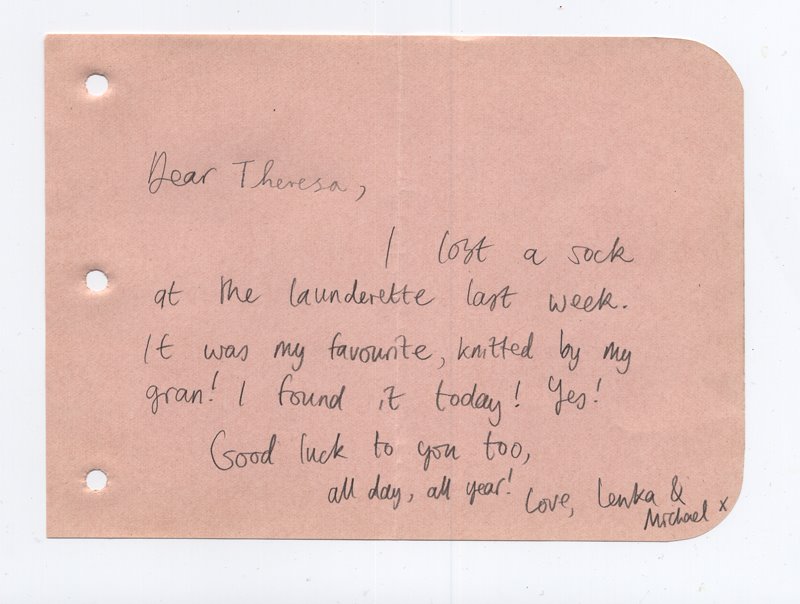 Dear Theresa,
I lost a sock
at the launderette last week.
It was my favourite, knitted by my
gran! I found it today! Yes!
Good luck to you too,
all day, all year!
Love, Lenka &
Michael x